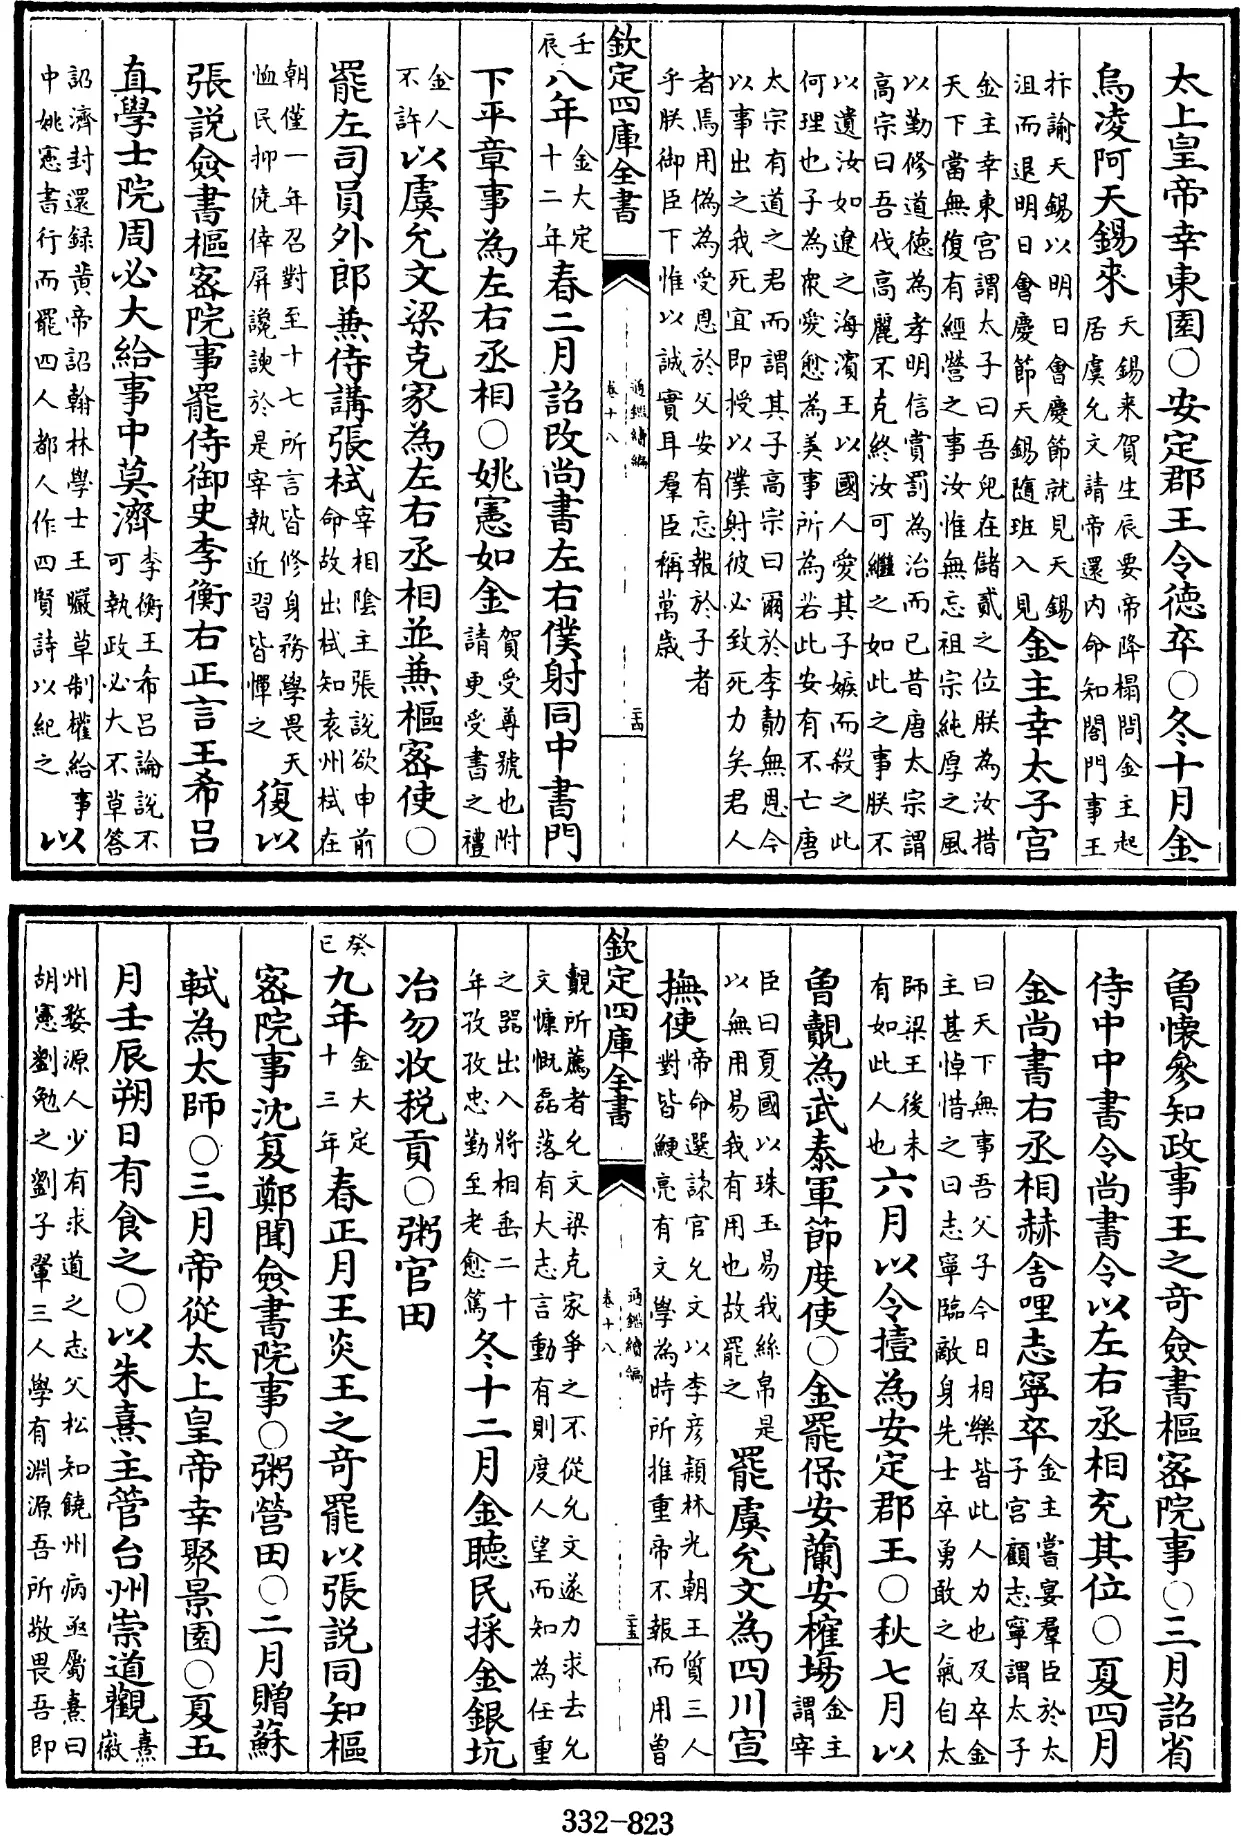 太上皇帝幸東園○安定郡王令德卒○冬十月金
烏凌阿天錫來
天錫来賀生辰要帝降榻問金主起
居虞允文請帝還内命知閤門事王
抃諭天錫以明日會慶節就見天錫
沮而退明日會慶節天錫隨班入見
金主幸太子宮
金主幸東宮謂太子曰吾兒在儲貳之位朕為汝措
天下當無復有經營之事汝惟無忘祖宗純厚之風
以勤修道德為孝明信賞罰為治而已昔唐太宗謂
高宗曰吾伐高麗不克終汝可繼之如此之事朕不
以遺汝如遼之海濱王以國人愛其子嫉而殺之此
何理也子為衆愛愈為美事所為若此安有不亡唐
太宗有道之君而謂其子高宗曰爾於李勣無恩今
以事出之我死宜即授以僕射彼必致死力矣君人
者焉用偽為受恩於父安有忘報於子者
乎朕御臣下惟以誠實耳羣臣稱萬歳
欽定四庫全書
通鑑續編
卷十八
二十四
壬辰
八年
金大定
十二年
春二月詔改尚書左右僕射同中書門
下平章事為左右丞相○姚憲如金
賀受尊號也附
請更受書之禮
金人
不許
以虞允文梁克家為左右丞相並兼樞密使○
罷左司員外郎兼侍講張栻
宰相陰主張說欲申前
命故出栻知袁州栻在
朝僅一年召對至十七所言皆修身務學畏天
恤民抑僥倖屏讒諛於是宰執近習皆憚之
復以
張說僉書樞密院事罷侍御史李衡右正言王希呂
直學士院周必大給事中莫濟
李衡王希吕論說不
可執政必大不草答
詔濟封還録黄帝詔翰林學士王曮草制權給事
中姚憲書行而罷四人都人作四賢詩以紀之
以
曾懷參知政事王之奇僉書樞密院事○三月詔省
侍中中書令尚書令以左右丞相充其位○夏四月
金尚書右丞相赫舍哩志寧卒
金主嘗宴羣臣於太
子宮顧志寧謂太子
曰天下無事吾父子今日相樂皆此人力也及卒金
主甚悼惜之曰志寧臨敵身先士卒勇敢之氣自太
師梁王後未
有如此人也
六月以令㙷為安定郡王○秋七月以
曾覿為武泰軍節度使○金罷保安蘭安榷場
金主
謂宰
臣曰夏國以珠玉易我絲帛是
以無用易我有用也故罷之
罷虞允文為四川宣
撫使
帝命選諫官允文以李彦頴林光朝王質三人
對皆鯁亮有文學為時所推重帝不報而用曾
覿所薦者允文梁克家爭之不從允文遂力求去允
文慷慨磊落有大志言動有則度人望而知為任重
之器出入將相垂二十
年孜孜忠勤至老愈篤
冬十二月金聽民採金銀坑
冶勿收税貢○粥官田
癸巳
九年
金大定
十三年
春正月王炎王之奇罷以張說同知樞
密院事沈夏鄭聞僉書院事○粥營田○二月贈蘇
軾為太師○三月帝從太上皇帝幸聚景園○夏五
月壬辰朔日有食之○以朱熹主管台州崇道觀
熹
徽
州婺源人少有求道之志父松知饒州病亟屬熹曰
胡憲劉勉之劉子翬三人學有淵源吾所敬畏吾即
欽定四庫全書
通鑑續編
卷十八
二十五
332-823